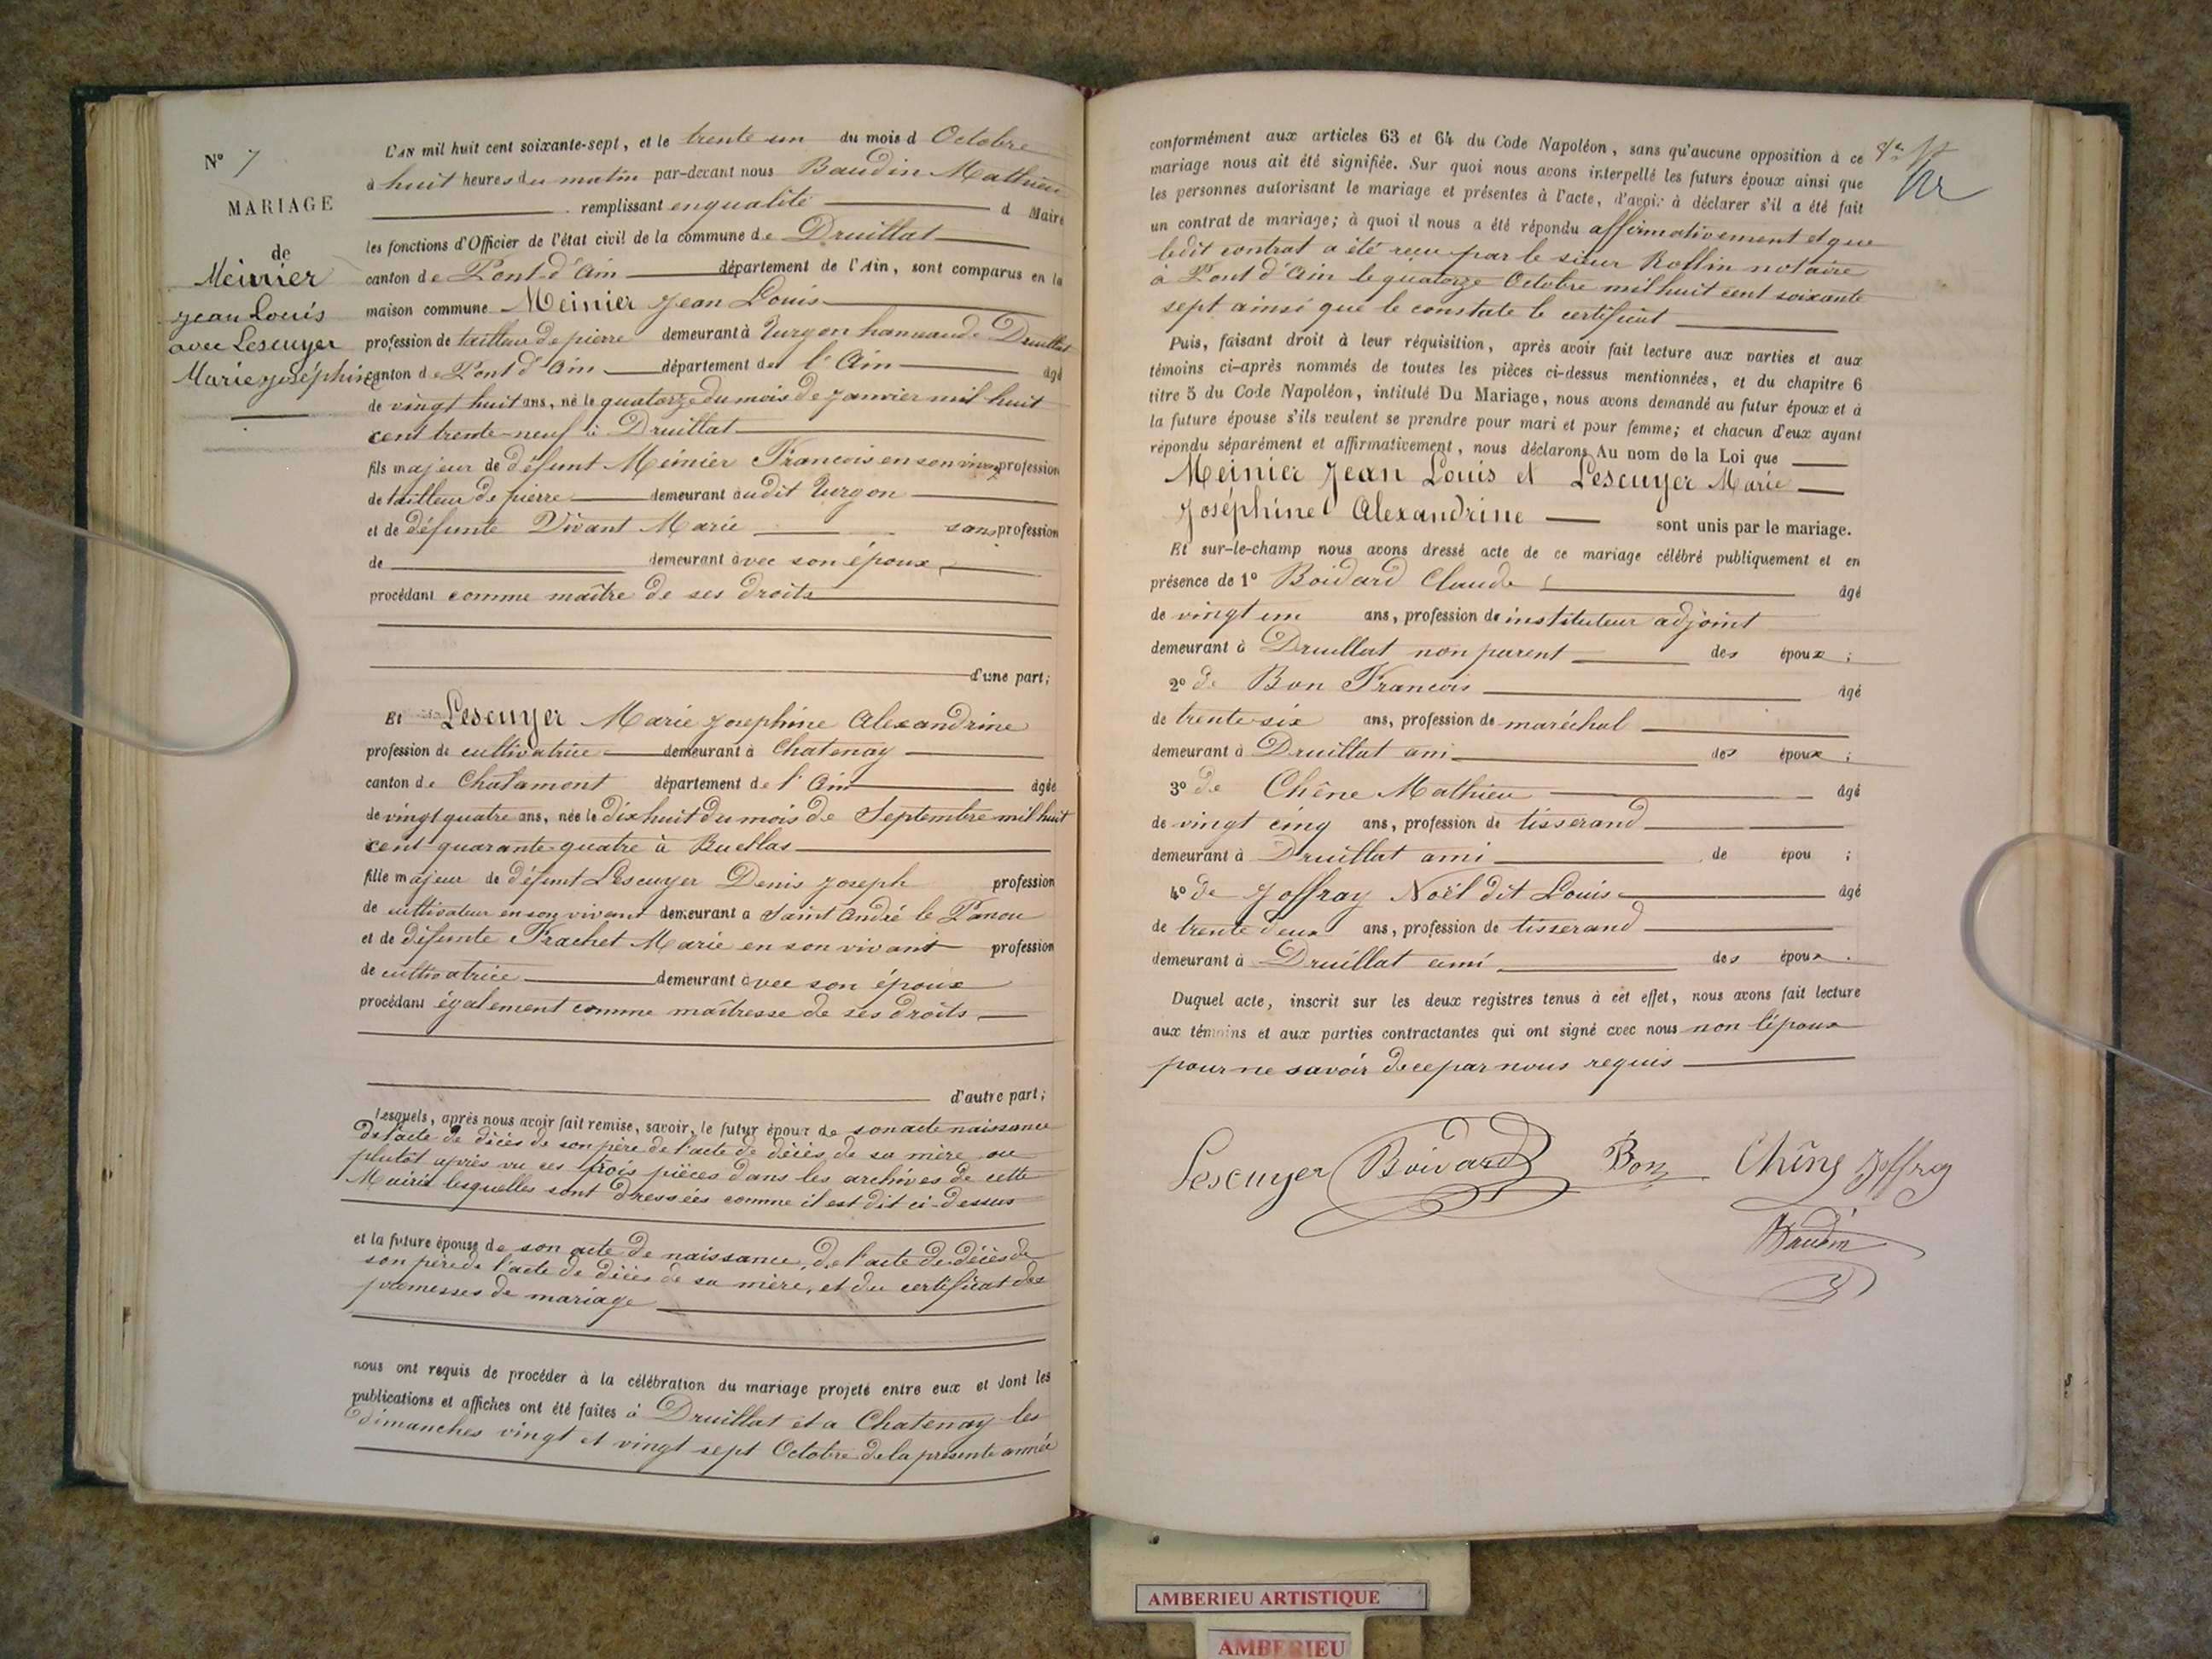 N° 7
MARIAGE
de
Meinier
Jean Louis
avec Lescuyer
Marie Joséphine
L'AN mil huit cent soixante-sept, et le trente un du mois d Octobre
à huit heures du matin par-devant nous Baudin Mathieu
remplissant en qualité d Maire
les fonctions d'Officier de l'état civil de la commune de Druillat
canton de Pont d'Ain département de l'Ain, sont comparus en la
maison commune Meinier Jean Louis
profession de tailleur de pierre demeurant à Turgon hameau de Druillat
canton de Pont d'Ain département de l'Ain âgé
de vingt huit ans, né le quatorze du mois de Janvier mil huit
cent trente-neuf à Druillat
fils majeur de défunt Meinier Francois en son vivant profession
de tailleur de pierre demeurant audit Turgon
et de défunte Vivant Marie sans profession
de demeurant avec son époux
procédant comme maître de ses droits
d'une part;
Et Lescuyer Marie Josephine Alexandrine
profession de cultivatrice demeurant à Chatenay
canton de Chalamont département de l'Ain âgée
de vingt quatre ans, née le dix huit du mois de Septembre mil huit
cent quarante-quatre à Buellas
fille majeur de défunt Lescuyer Denis Joseph profession
de cultivateur en son vivant demeurant a Saint André le Panou
et de défunte Frachet Marie en son vivant profession
de cultivatrice demeurant avec son époux
procédant également comme maîtresse de ses droits
d'autre part;
Lesquels, après nous avoir fait remise, savoir, le futur époux de son acte naissance
de l'acte de décès de son père de l'acte de décès de sa mère ou
plutôt après vu ces trois pièces dans les archives de cette
Mairie lesquelles sont dressées comme il est dit ci-dessus
et la future épouse de son acte de naissance, de l'acte de décès de
son père de l'acte de décès de sa mère, et du certificat des
promesses de mariage
nous ont requis de procéder à la célébration du mariage projeté entre eux et dont les
publications et affiches ont été faites à Druillat et a Chatenay les
dimanches vingt et vingt sept Octobre de la présente année
conformément aux articles 63 et 64 du Code Napoléon, sans qu'aucune opposition à ce
mariage nous ait été signifiée. Sur quoi nous avons interpellé les futurs époux ainsi que
les personnes autorisant le mariage et présentes à l'acte, d'avoir à déclarer s'il a été fait
un contrat de mariage; à quoi il nous a été répondu affirmativement et que
ledit contrat a été reçu par le sieur Rollin notaire
à Pont d'Ain le quatorze Octobre mil huit cent soixante
sept ainsi que le constate le certificat
Puis, faisant droit à leur réquisition, après avoir fait lecture aux parties et aux
témoins ci-après nommés de toutes les pièces ci-dessus mentionnées, et du chapitre 6
titre 5 du Code Napoléon, intitulé Du Mariage, nous avons demandé au futur époux et à
la future épouse s'ils veulent se prendre pour mari et pour femme; et chacun d'eux ayant
répondu séparément et affirmativement, nous déclarons Au nom de la Loi que
Meinier Jean Louis et Lescuyer Marie
Joséphine Alexandrine sont unis par le mariage.
Et sur-le-champ nous avons dressé acte de ce mariage célébré publiquement et en
présence de 1° Boidard Claude âgé
de vingt un ans, profession de instituteur adjoint
demeurant à Druillat non parent des époux;
2° de Bon Francois âgé
de trente-six ans, profession de maréchal
demeurant à Druillat ami des époux;
3° de Chêne Mathieu âgé
de vingt cinq ans, profession de tisserand
demeurant à Druillat ami de épou ;
4° de Joffray Noël dit Louis âgé
de trente deux ans, profession de tisserand
demeurant à Druillat ami des époux.
Duquel acte, inscrit sur les deux registres tenus à cet effet, nous avons fait lecture
aux témoins et aux parties contractantes qui ont signé avec nous non l'époux
pour ne savoir de ce par nous requis
Lescuyer Boidard Bon Chêne Joffray
Baudin
AMBERIEU ARTISTIQUE
AMBERIEU